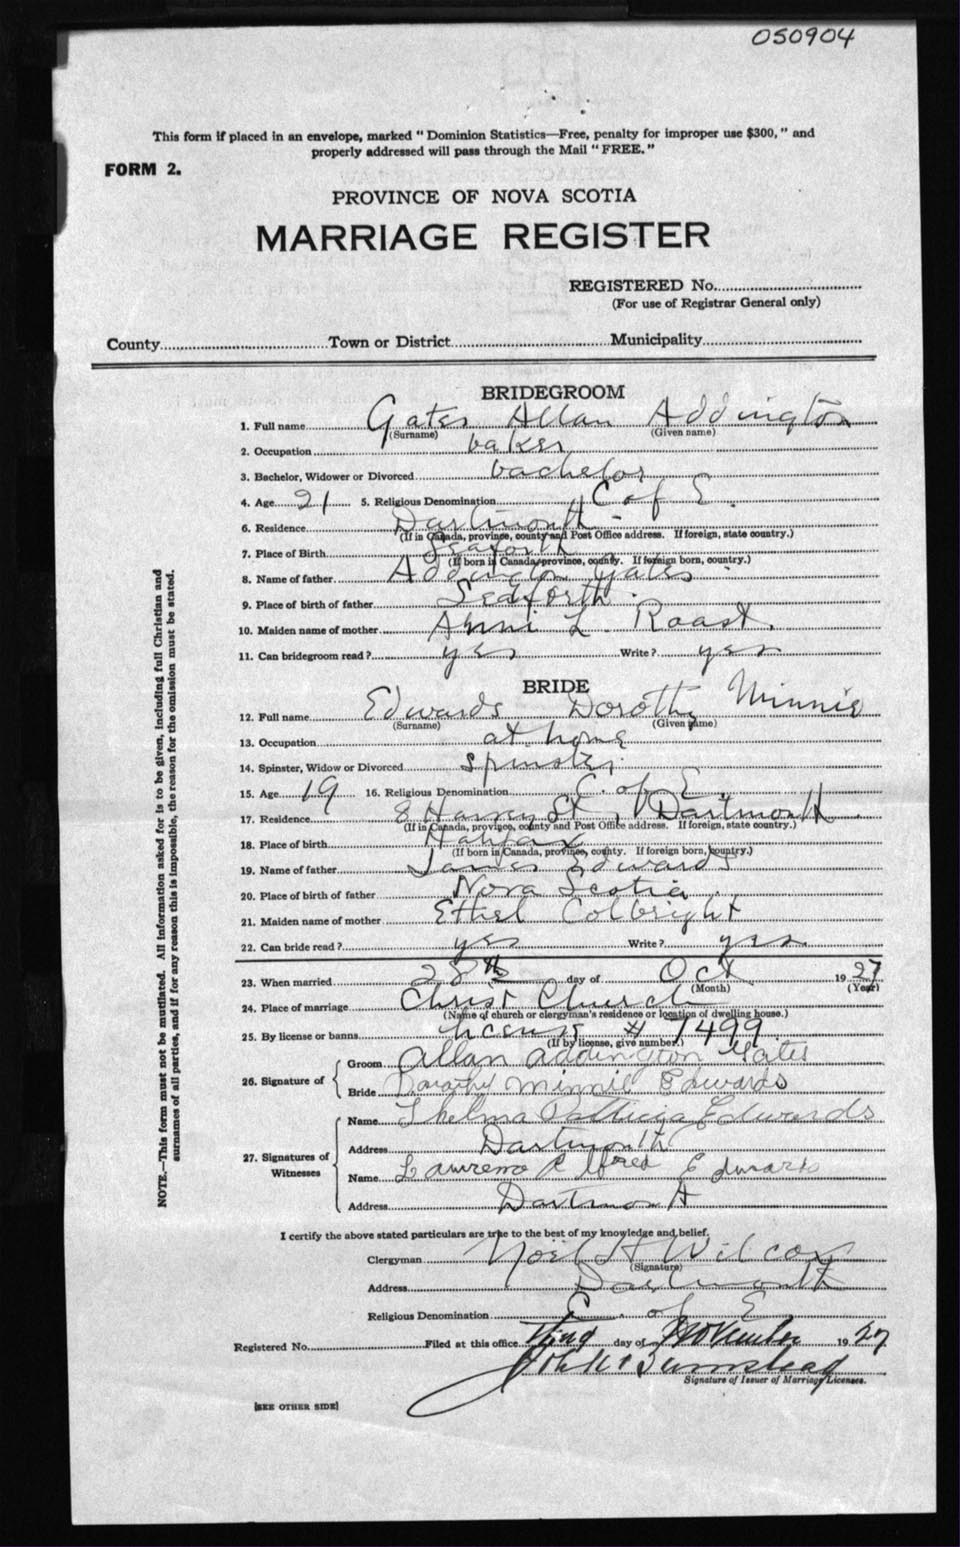 050904
This form if placed in an envelope, marked "Dominion Statistics—Free, penalty for improper use $300," and
properly addressed will pass through the Mail "FREE."
FORM 2.
PROVINCE OF NOVA SCOTIA
MARRIAGE REGISTER
REGISTERED No.
(For use of Registrar General only)
County Town or District Municipality
BRIDEGROOM
1. Full name Gates Allan Addington
(Surname) (Given name)
2. Occupation baker
3. Bachelor, Widower or Divorced bachelor
4. Age 21 5. Religious Denomination C of E.
6. Residence Dartmouth
(If in Canada, province, county and Post Office address. If foreign, state country.)
7. Place of Birth Seaforth
(If born in Canada, province, county. If foreign born, country.)
8. Name of father Addington Gates
9. Place of birth of father Seaforth
10. Maiden name of mother Anni L Roast.
11. Can bridegroom read? yes Write? yes
BRIDE
12. Full name Edwards Dorothy Minnie
(Surname) (Given name)
13. Occupation at home
14. Spinster, Widow or Divorced spinster
15. Age 19 16. Religious Denomination C. of E.
17. Residence 8 St, Dartmouth
(If in Canada, province, county and Post Office address. If foreign, state country.)
18. Place of birth Halifax
(If born in Canada, province, county. If foreign born, country.)
19. Name of father James Edwards
20. Place of birth of father Nova Scotia
21. Maiden name of mother Ethel Colbright
22. Can bride read? yes Write? yes
23. When married 28th day of Oct 1927
(Month) (Year)
24. Place of marriage Christ Church
(Name of church or clergyman's residence or location of dwelling house.)
25. By license or banns license # 7499
(If by license, give number.)
26. Signature of Groom Allan Addington Gates
Bride Dorothy Minnie Edwards
27. Signatures of Witnesses Name Thelma Patricia Edwards
Address Dartmouth
Name Edwards
Address Dartmouth
I certify the above stated particulars are true to the best of my knowledge and belief.
Clergyman Noel H Wilcox
(Signature)
Address Dartmouth
Religious Denomination C. of E
Registered No. Filed at this office day of November 1927
Signature of Issuer of Marriage Licenses.
[SEE OTHER SIDE]
NOTE.—This form must not be mutilated. All information asked for is to be given, including full Christian and
surnames of all parties, and if for any reason this is impossible, the reason for the omission must be stated.